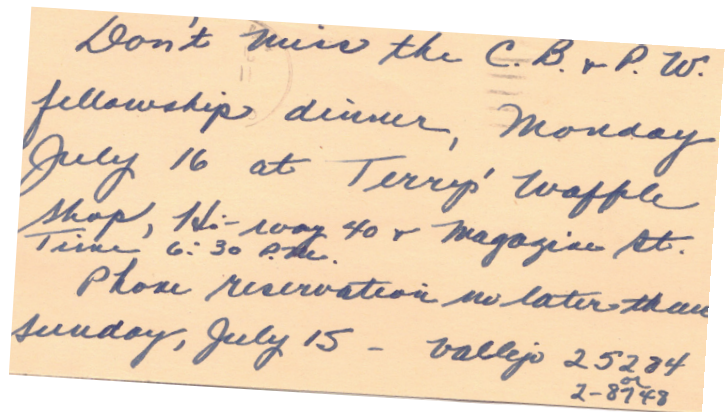 Don't miss the C. B. & P. W.
fellowship dinner, Monday
July 16 at Terrys' Waffle
Shop, Hi-way 40 & Magazine St.
Time 6:30 P.M.
Phone reservation no later than
Sunday, July 15 - Vallejo 25284
or
2-8748